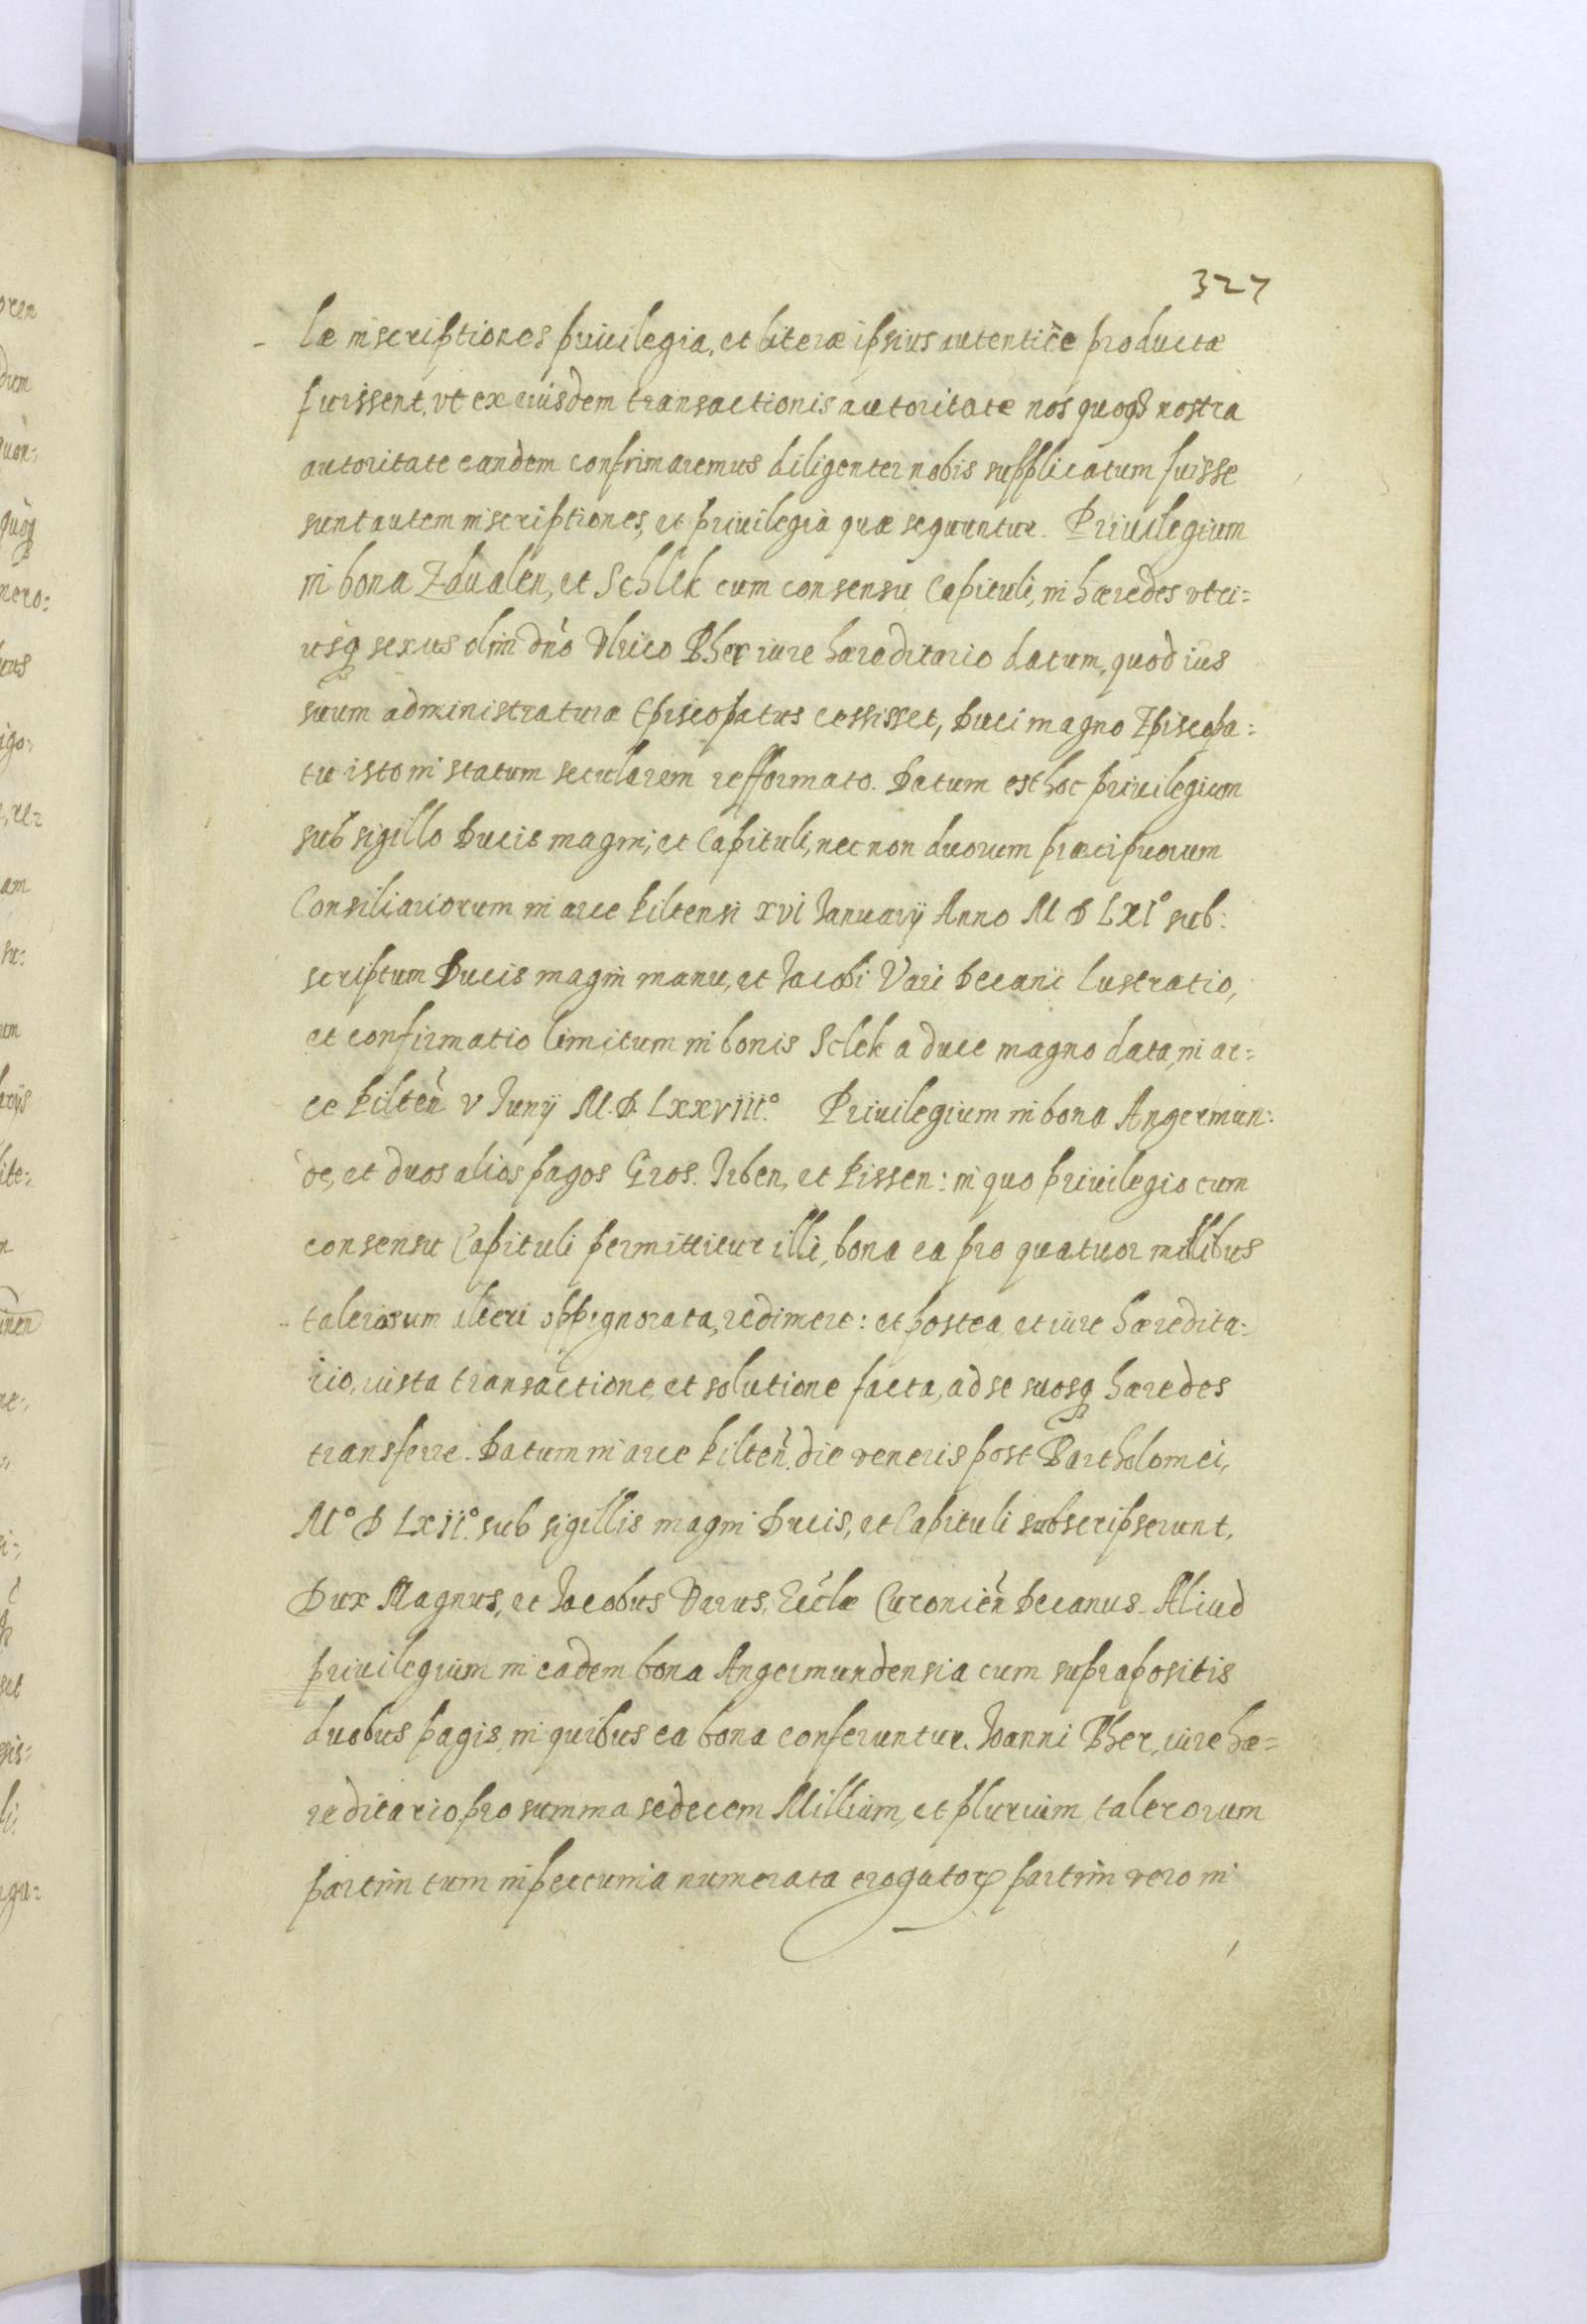 327
læ inscriptiones privilegia, et literæ ipsius autenticè productæ
fuissent, vt ex eiusdem transactionis autoritate nos quoqȝ nostra
autoritate eandem confirmaremus diligenter nobis supplicatum fuisse
sunt autem inscriptiones, et privilegia quæ sequuntur. Privilegium
in bona Zdualen, et Schlek cum consensu Capituli, in hæredes vtri=
usqȝ sexus olim dño Vlrico Bher iure hæreditario datum, quod ius
suum administraturæ Episcopatus cessisset, Duci magno Episcopa=
tu isto in statum secularem refformato. Datum est hoc privilegium
sub sigillo Ducis magni, et Capituli, nec non duorum præcipuorum
Consiliariorum in arce Piltensi xvi Ianuarij Anno M D LXI° sub:
scriptum Ducis magni manu, et Iacobi Vari Decani: lustratio,
et confirmatio limitum in bonis Sclek a duce magno data, in ar=
ce Pilteñ v Iunij M. D. Lxxviii.° Privilegium in bona Angermun:
de, et duos alios pagos Gros. Irben, et Pissen: in quo privilegio cum
consensu Capituli permittitur illi, bona ea pro quatuor millibus
talerorum alteri oppignorata, redimere: et postea, et iure hæredita:
rio, iusta transactione, et solutione facta, ad se suosqȝ hæredes
transferre. Datum in arce Pilteñ. die veneris post Bartholomei,
M° D Lxii.° sub sigillis magni Ducis, et Capituli subscripserunt.
Dux Magnus, et Iacobus Varus, Eccłæ Curonień Decanus. Aliud
privilegium in eadem bona Angermundensia cum suprapositis
duobus pagis, in quibus ea bona conferuntur. Ioanni Bher, iure hæ=
reditario, pro summa sedecem Millium, et plurium, talerorum
partim tum in peccunia numerata erogatoꝝ partim vero in